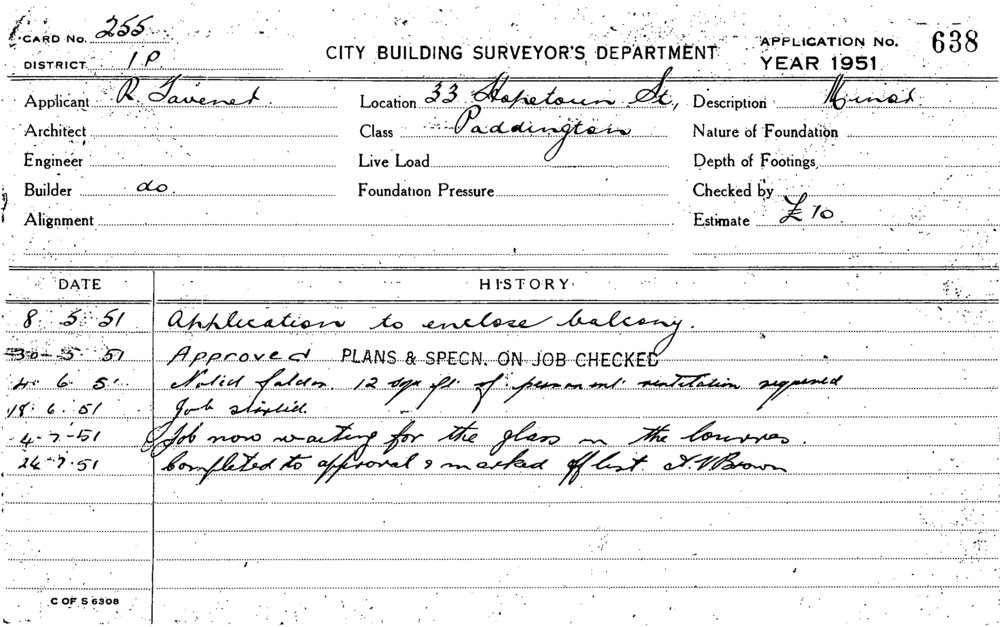 CARD No. 255
DISTRICT 1 P.
CITY BUILDING SURVEYOR'S DEPARTMENT
APPLICATION No. 638
YEAR 1951
Applicant R. Tavener Location 33 Hopetoun St, Description Minor
Architect Class Paddington Nature of Foundation
Engineer Live Load Depth of Footings
Builder do. Foundation Pressure Checked by
Alignment Estimate £70
DATE HISTORY
8. 5. 51 Application to enclose balcony.
30-5. 51 Approved PLANS & SPECN. ON JOB CHECKED
4. 6. 51 12 sqr ft. of permanent ventilation required
18. 6. 51 Job started.
4-7-51 Job now waiting for the glass in the louvres.
24.7.51 Completed to approval & marked off list A.V Brown
C OF S 6308